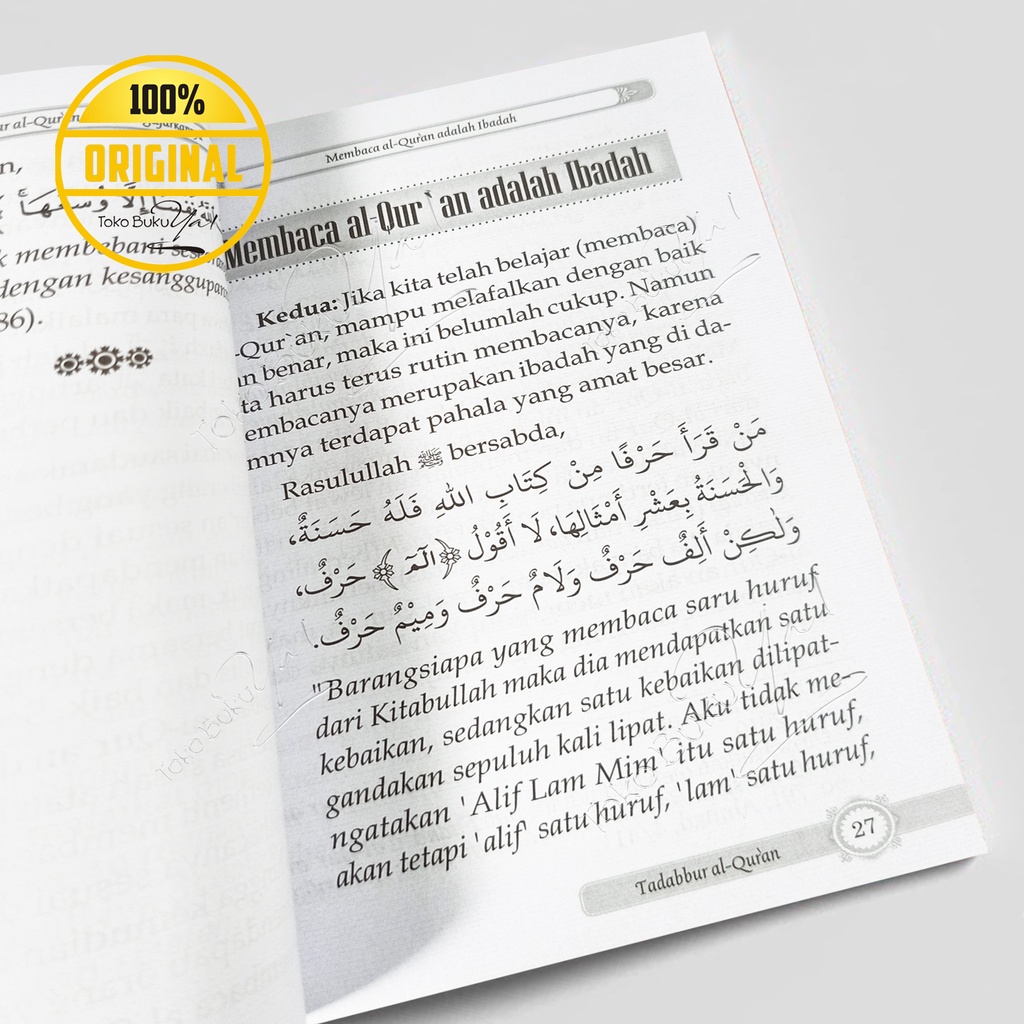 100%
ORIGINAL
Toko Buku Ya!
ur al-Qur`an
n,
نَفْسًا إِلَّا وُسْعَهَا
k membebani
dengan kesanggupan
86).
Membaca al-Qur`an adalah Ibadah
Membaca al-Qur`an adalah Ibadah
Kedua: Jika kita telah belajar (membaca)
-Qur`an, mampu melafalkan dengan baik
n benar, maka ini belumlah cukup. Namun
ta harus terus rutin membacanya, karena
embacanya merupakan ibadah yang di da-
mnya terdapat pahala yang amat besar.
Rasulullah ﷺ bersabda,
مَنْ قَرَأَ حَرْفًا مِنْ كِتَابِ اللهِ فَلَهُ حَسَنَةٌ،
وَالْحَسَنَةُ بِعَشْرِ أَمْثَالِهَا، لَا أَقُوْلُ ﴿الٓمٓ﴾ حَرْفٌ،
وَلٰكِنْ أَلِفٌ حَرْفٌ وَلَامٌ حَرْفٌ وَمِيْمٌ حَرْفٌ.
"Barangsiapa yang membaca saru huruf
dari Kitabullah maka dia mendapatkan satu
kebaikan, sedangkan satu kebaikan dilipat-
gandakan sepuluh kali lipat. Aku tidak me-
ngatakan 'Alif Lam Mim' itu satu huruf,
akan tetapi 'alif' satu huruf, 'lam' satu huruf,
Tadabbur al-Qur`an
27